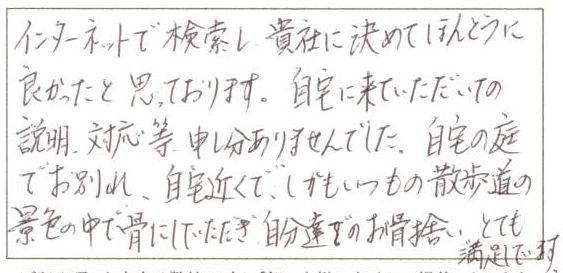 インターネットで検索し貴社に決めてほんとうに
良かったと思っております。自宅に来ていただいての
説明、対応等、申し分ありませんでした。自宅の庭
でお別れ、自宅近くで、しかもいつもの散歩道の
景色の中で骨にしていただき自分達でのお骨捨い、とても
満足しています